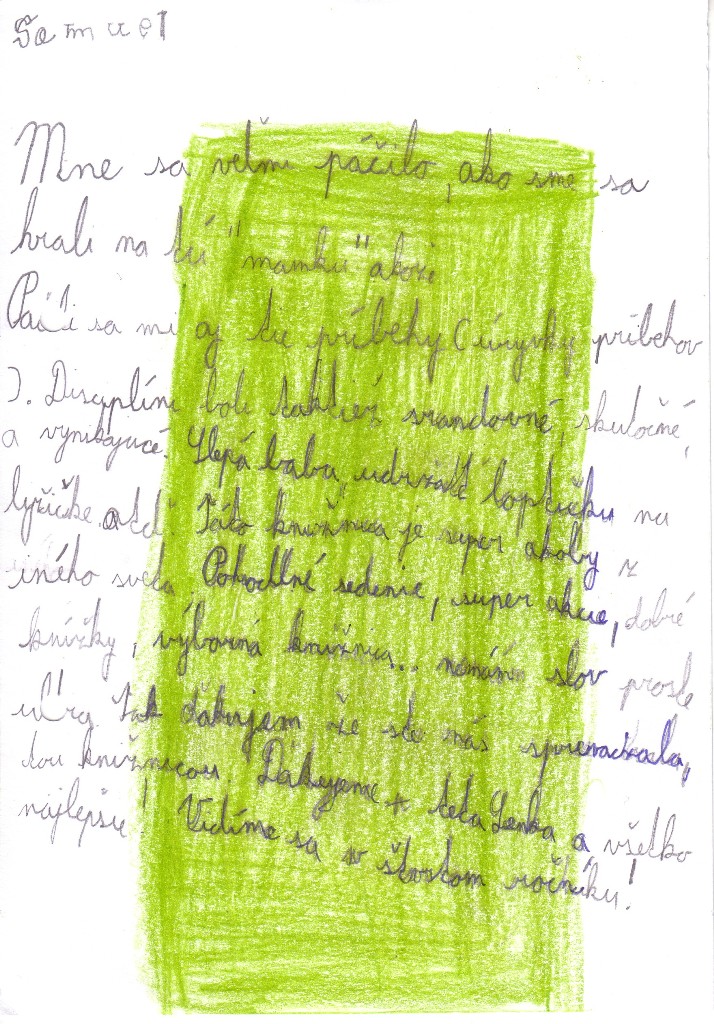 Samuel
Mne sa veľmi páčilo, ako sme sa
hrali na tú "mamku" akože
Páči sa mi aj tie príbehy (úryvky príbehov
). Disciplíni boli taktiež srandovné, skutočné,
a vynikajúcé. Slepá baba, udržať loptičku na
lyžičke atď. Táto knižnica je super akoby z
iného sveta. Pohodlné sedenie, super akcie, dobré
knížky, výborná knižnica... nemám slov proste
ultra tak ďakujem že ste nás sprevádzala,
tou knižnicou. Ďakujeme teta Lenka a všetko
najlepšie! Vidíme sa v štvrtom ročníku!